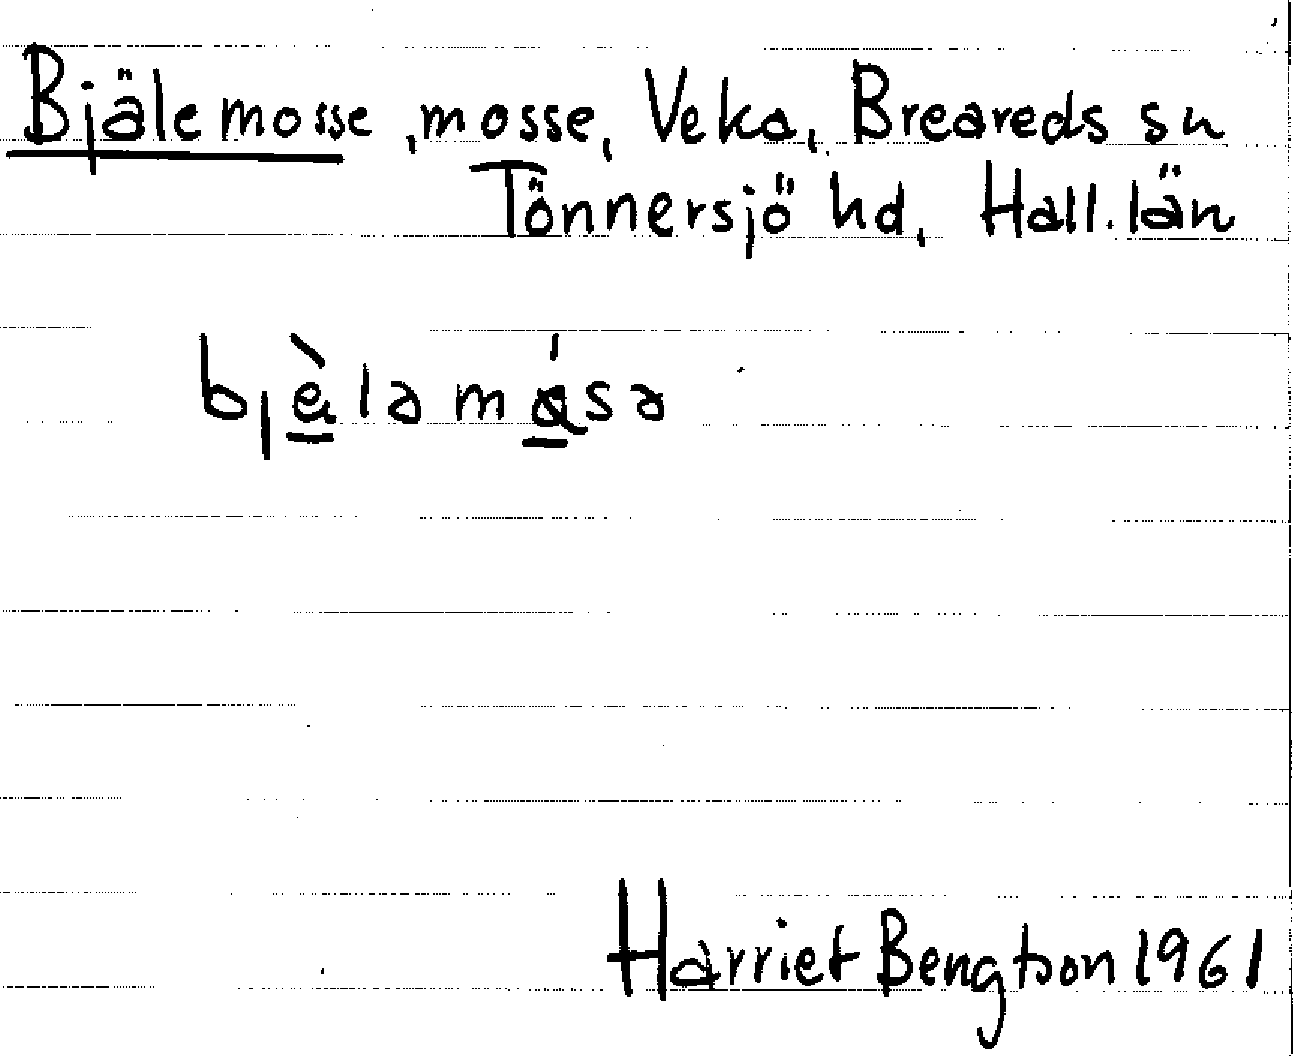 Bjälemosse, mosse, Veka, Breareds sn
Tönnersjö hd, Hall. län
bjèlamåsa
Harriet Bengtson 1961